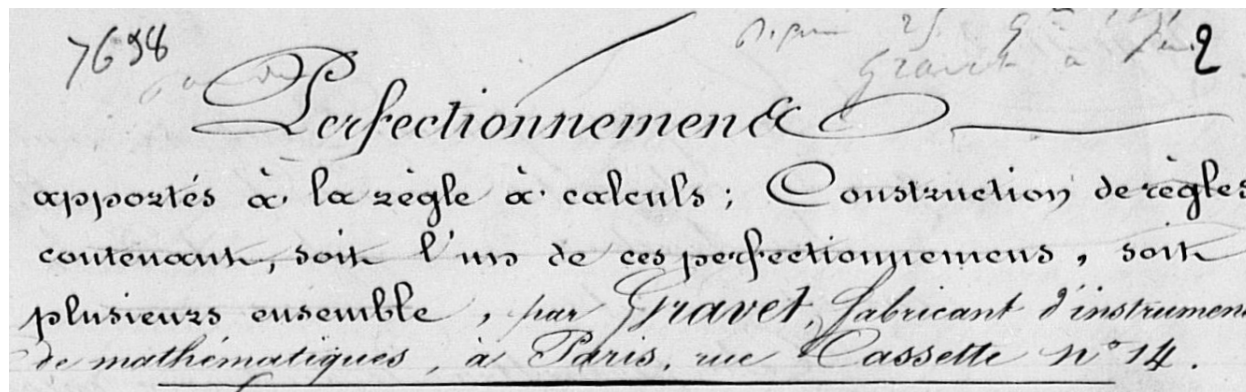 7698
2
Perfectionnemens
apportés à la règle à calculs; Construction de règles
contenant, soit l'un de ces perfectionnemens, soit
plusieurs ensemble, par Gravet, fabricant d'instrumen
de mathématiques, à Paris, rue Cassette n° 14.